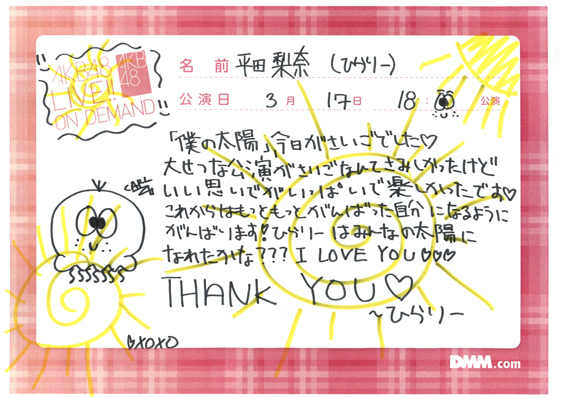 AKB48
LIVE!!
ON DEMAND
AKB
48
名 前 平田梨奈 (ひらりー)
公演日 3月 17日 18: 公演
「僕の太陽」今日がさいごでした♡
大せつな公演がさいごなんてさみしかったけど
いい思いでがいっぱいで楽しかったです♡
これからはもっともっとがんばった自分になるように
がんばります♡ひらりーはみんなの太陽に
なれたかな??? I LOVE YOU♡♡♡
THANK YOU♡
～ひらりー
XOXO
DMM.com